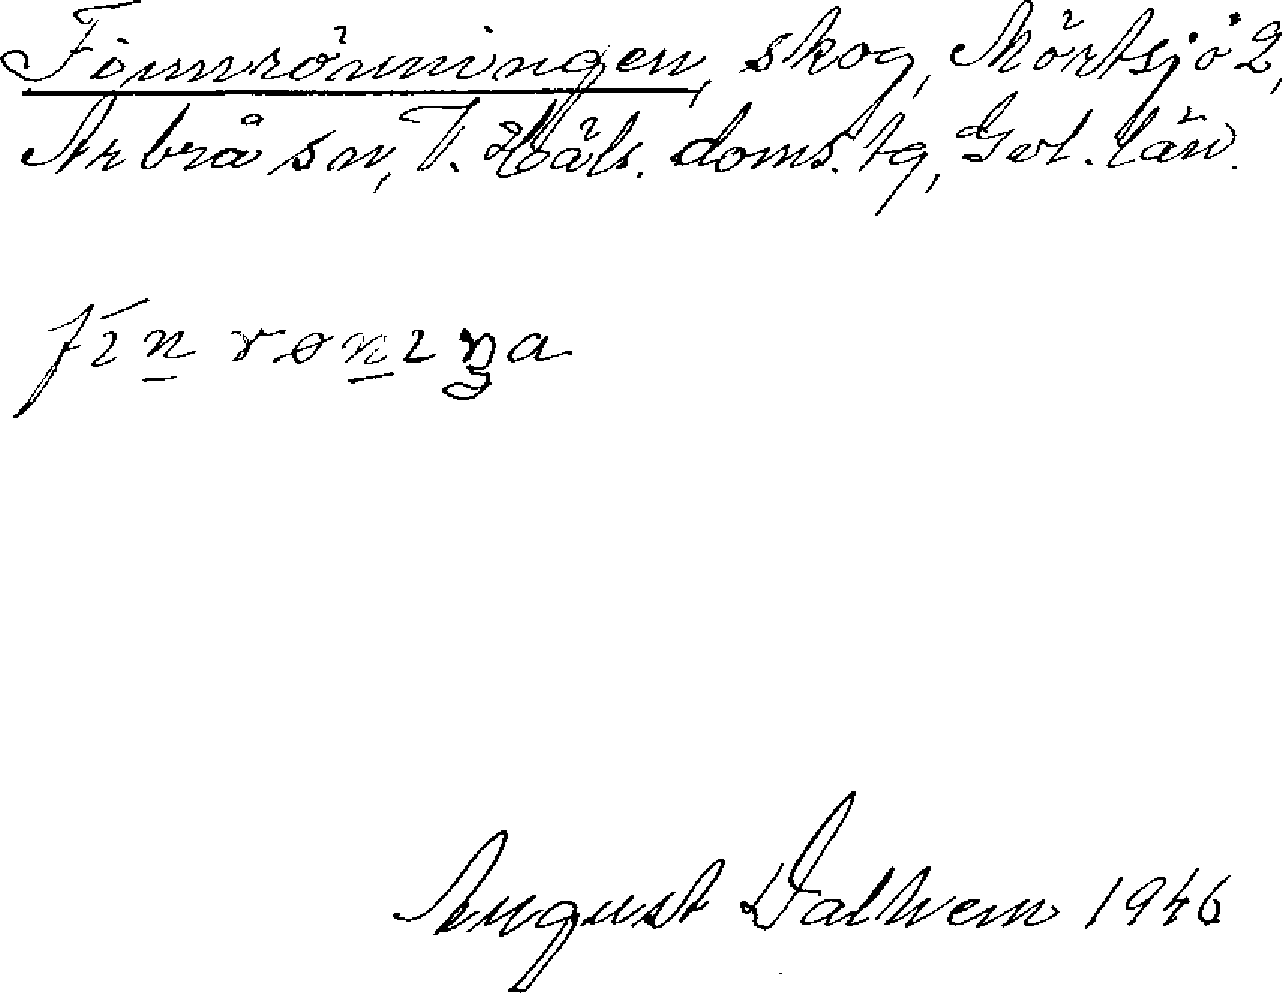 Finnrönningen, skog, Mörtsjö 2,
Arbrå sn, V. Häls. doms. tg, Gvl. län.
fın̲ rөn̲ıŋa
August Dalhem 1946